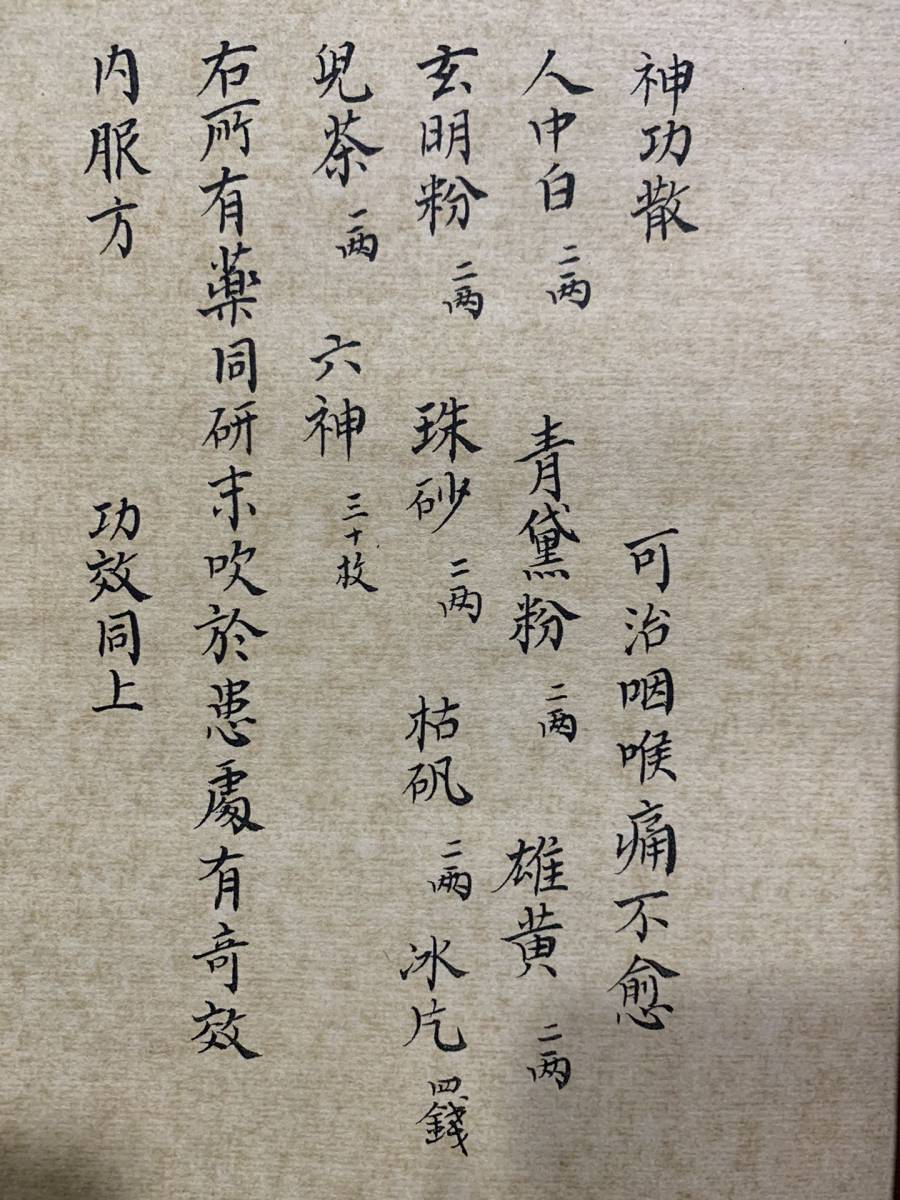 神功散 可治咽喉痛不愈
人中白 二両 青黛粉 二両 雄黄 二両
玄明粉 二両 珠砂 二両 枯矾 二両 冰片 四錢
兒茶 一両 六神 三十枚
右所有藥同研末吹於患處有奇效
内服方 功效同上